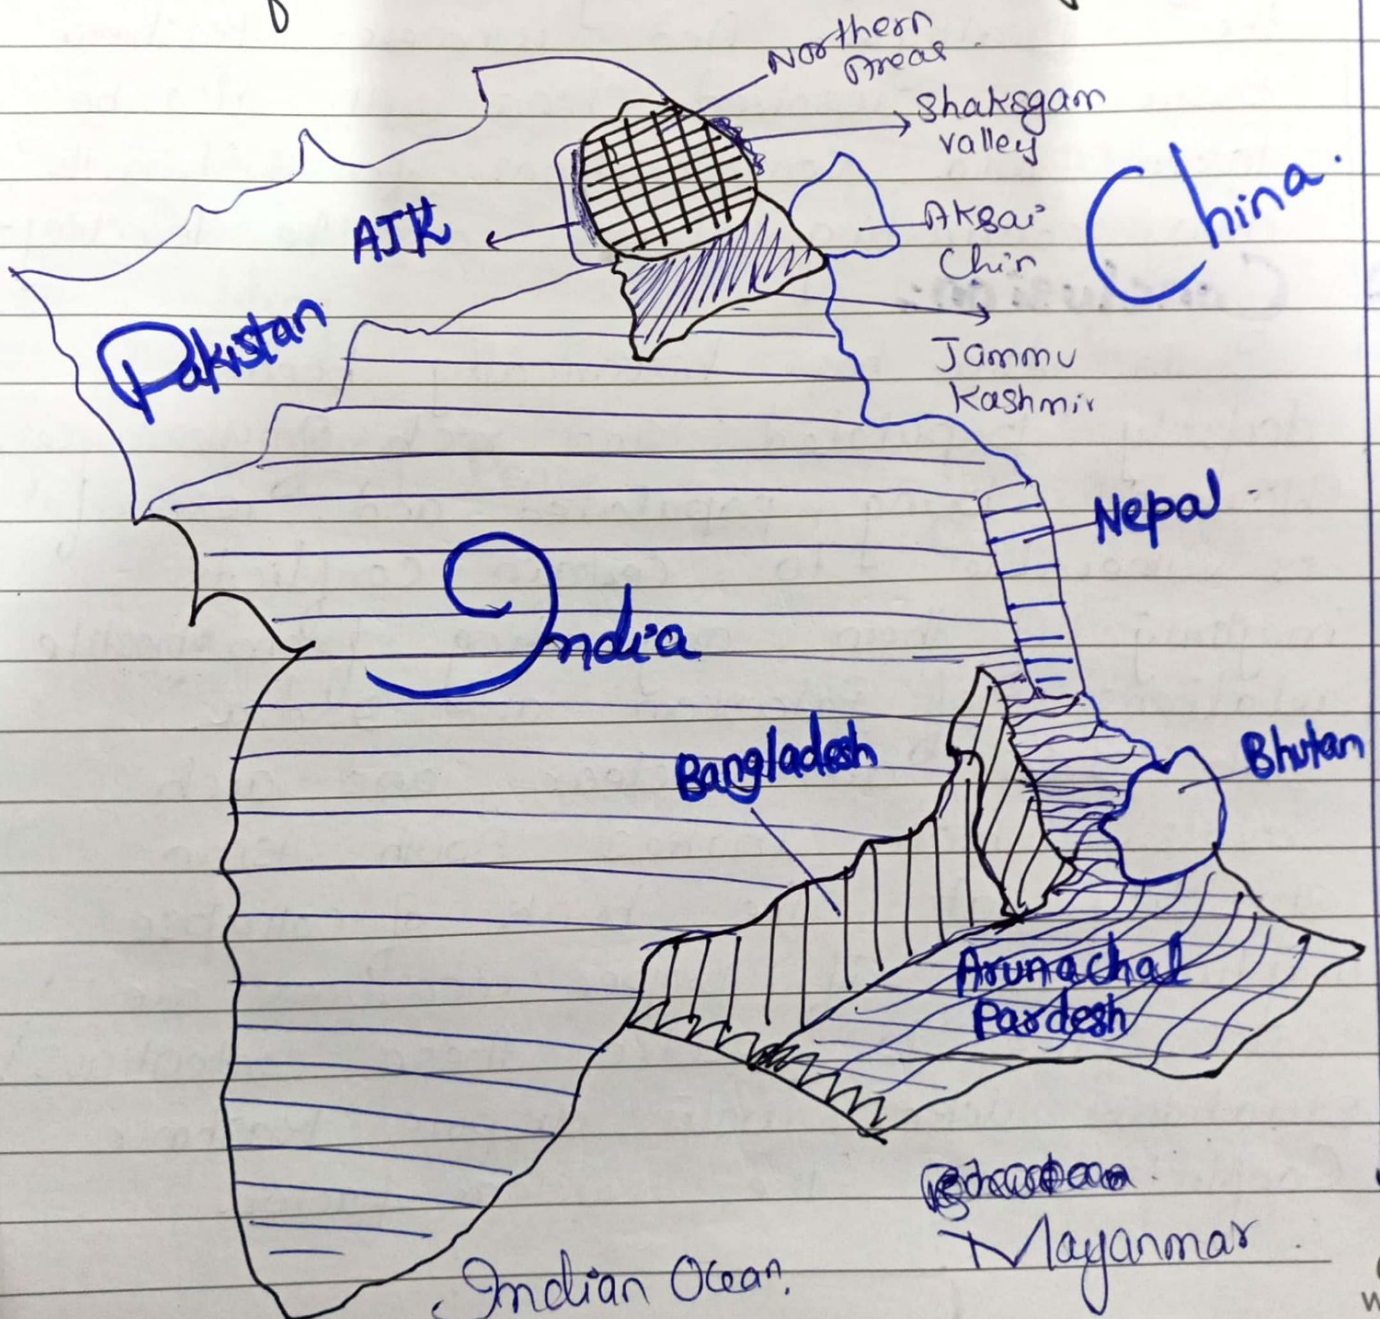 Northern
Areas
Shaksgam
valley
AJK
Aksai
Chin
China.
Pakistan
Jammu
Kashmir
Nepal
India
Bangladesh
Bhutan
Arunachal
Pardesh
Mayanmar
Indian Ocean.